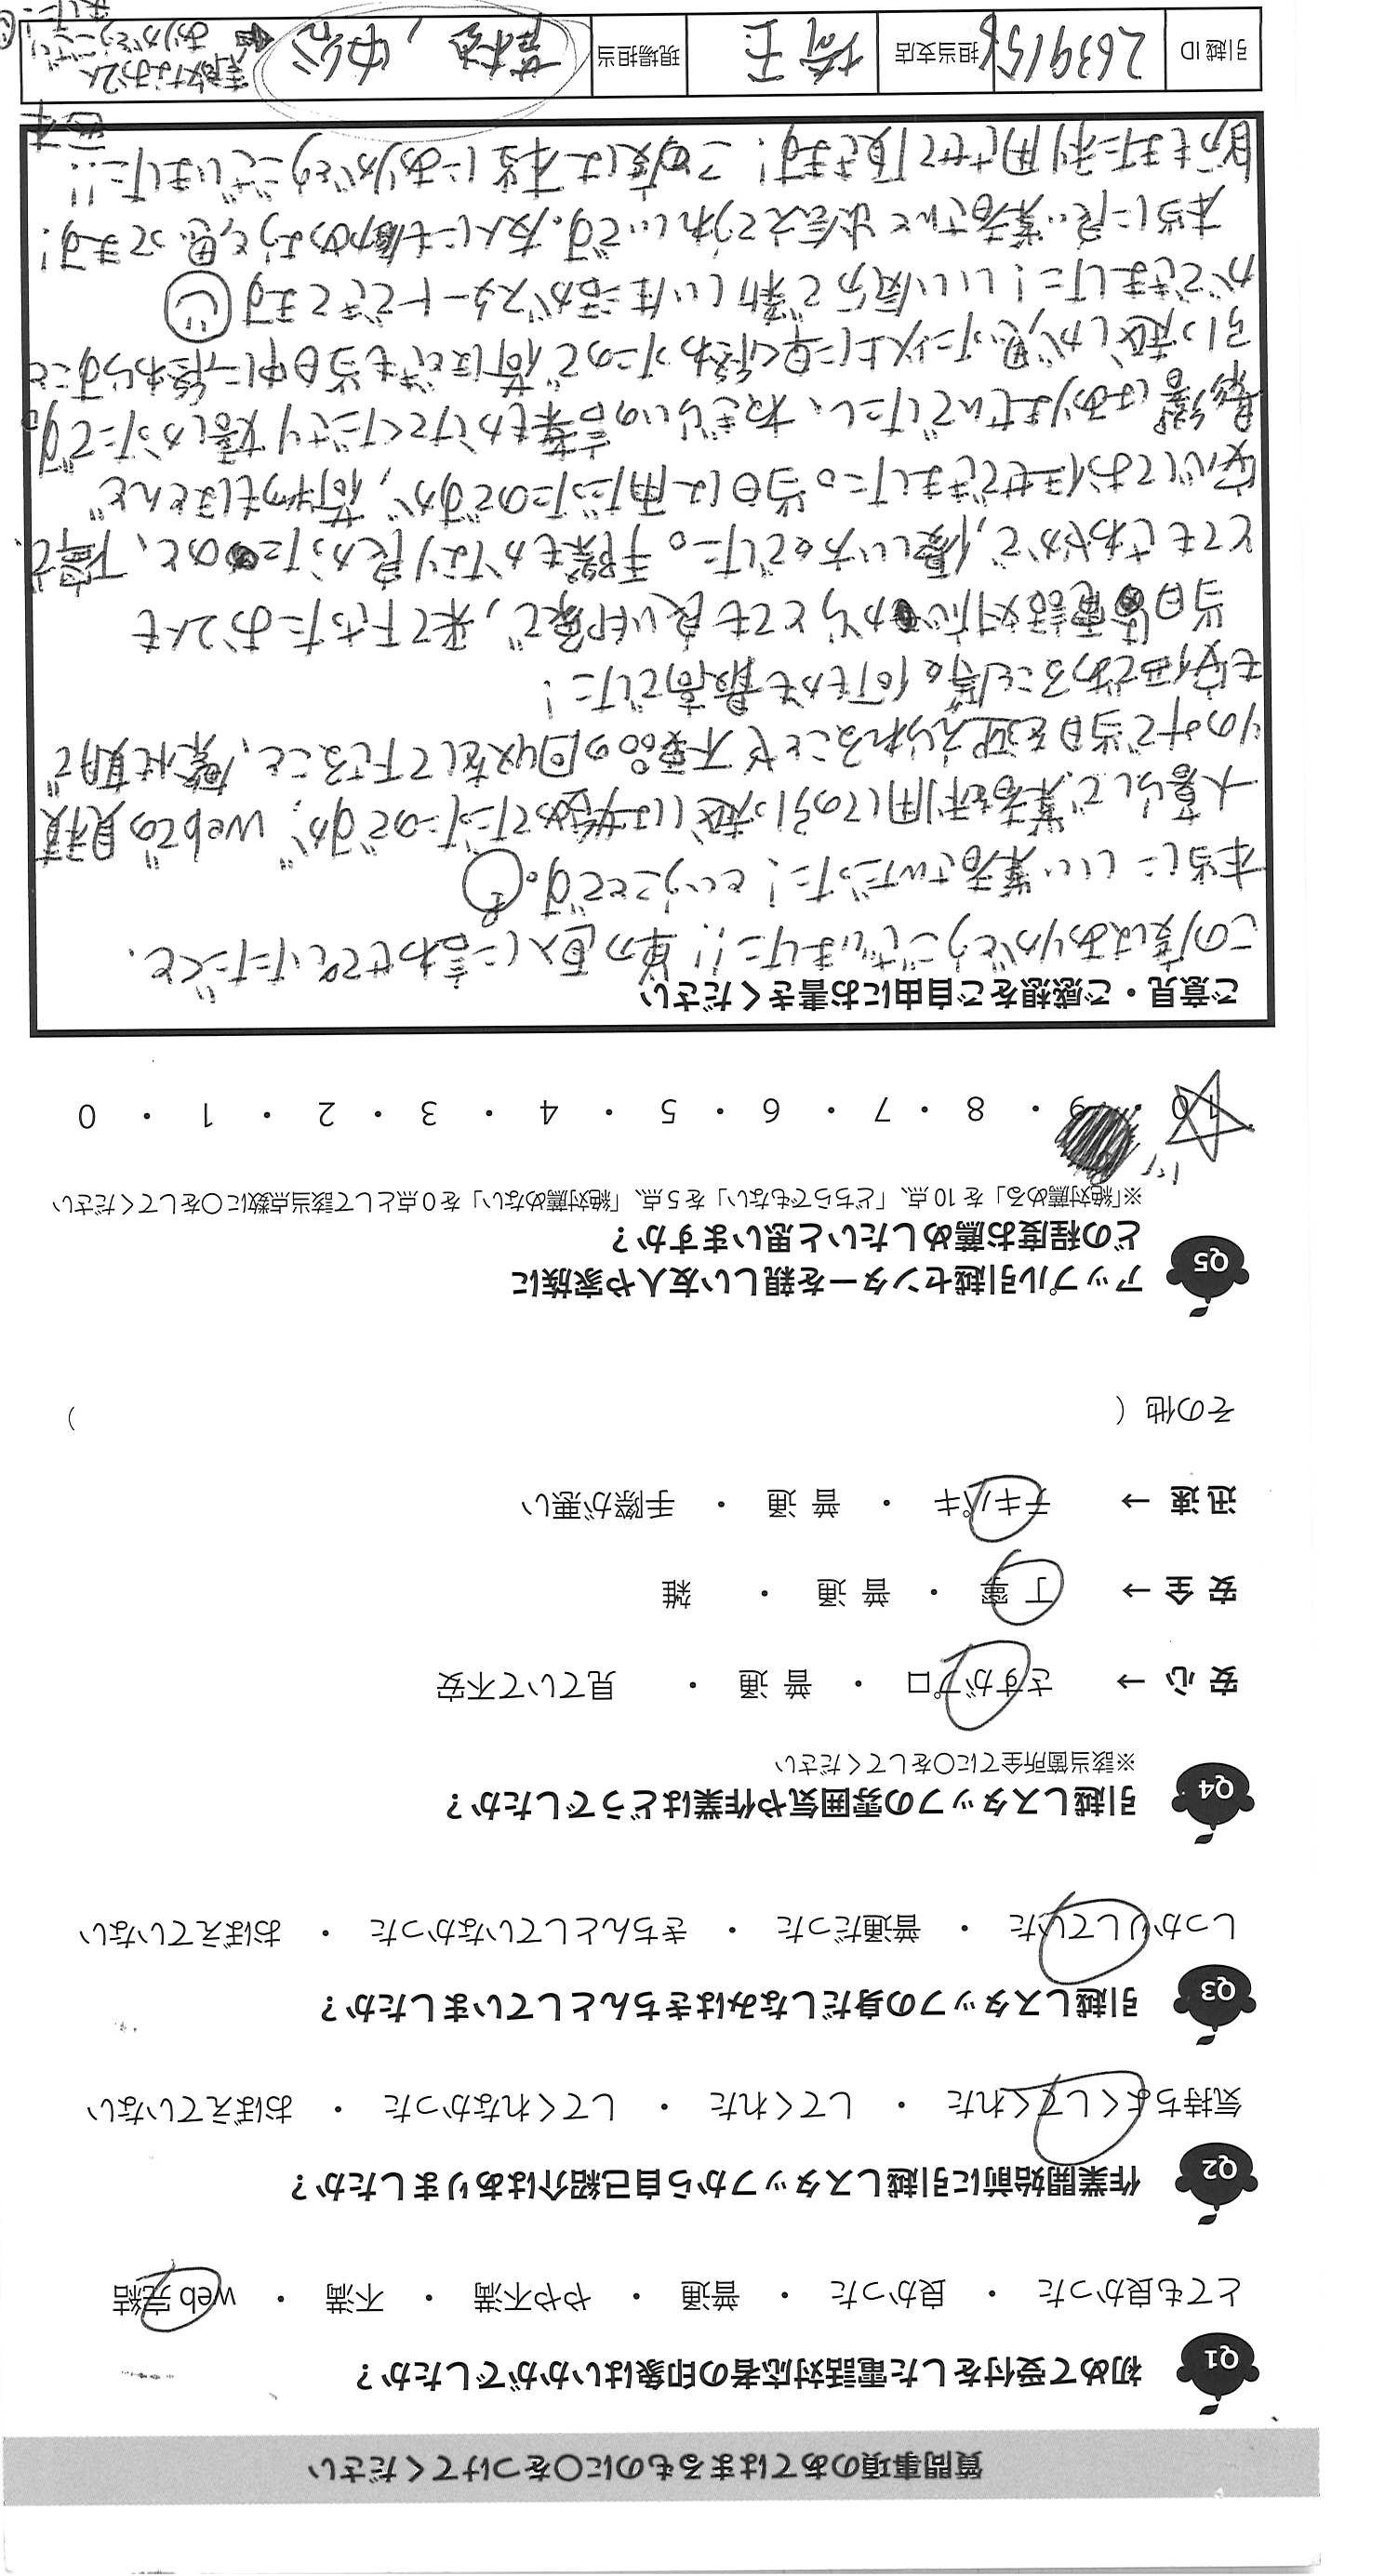 質問事項のあてはまるものに○をつけてください
Q1 初めて受付をした電話対応者の印象はいかがでしたか？
とても良かった ・ 良かった ・ 普通 ・ やや不満 ・ 不満 ・ web完結
Q2 作業開始前に引越しスタッフから自己紹介はありましたか？
気持ちよくしてくれた ・ してくれた ・ してくれなかった ・ おぼえていない
Q3 引越しスタッフの身だしなみはきちんとしていましたか？
しっかりしていた ・ 普通だった ・ きちんとしていなかった ・ おぼえていない
Q4 引越しスタッフの雰囲気や作業はどうでしたか？
※該当箇所全てに○をしてください
安心 → さすがプロ ・ 普通 ・ 見ていて不安
安全 → 丁寧 ・ 普通 ・ 雑
迅速 → テキパキ ・ 普通 ・ 手際が悪い
その他（ ）
Q5 アップル引越センターを親しい友人や家族に
どの程度お薦めしたいと思いますか？
※「絶対薦める」を10点、「どちらでもない」を5点、「絶対薦めない」を0点として該当点数に○をしてください
10 ・ 9 ・ 8 ・ 7 ・ 6 ・ 5 ・ 4 ・ 3 ・ 2 ・ 1 ・ 0
ご意見・ご感想をご自由にお書きください
この度はありがとうございました!! 単刀直入に言わせていただくと、
本当にいい業者さんだった！ということです。
一人暮らしで業者を利用しての引っ越しは始めてだったのですが、webでの見積
りのみで当日を迎えられることや不要品の回収をして下さること、繁忙期で
も安価であること等。何もかも最高でした！
当日は電話対応からとても良い印象で、来て下さったお2人も
とてもさわやかで、優しい方々でした。手際もかなり良かったのと、丁寧で、
安心しておまかせできました。当日は雨だったのですが、荷物もほとんど
影響はありませんでしたし、ねぎらいの言葉もかけてくださり嬉しかったです。
引っ越しが思った以上に早く終わったので荷ほどきも当日中に終わらすこと
ができました！いい気分で新しい生活がスタートできてます
本当に良い業者さんと出会えてうれしいです。友人にも薦めようと思ってます！
自分もまた利用させて頂きます！この度は本当にありがとうございました!!
引越ID 2639156 担当支店 埼玉 現場担当
素敵なお2人
ありがとうござい
ました!!